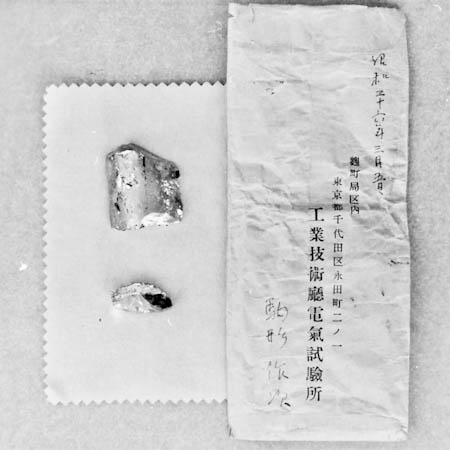 昭和二十六年三月五日
麹町局区内
東京都千代田区永田町二ノ一
工業技術廳電氣試驗所
駒形作次